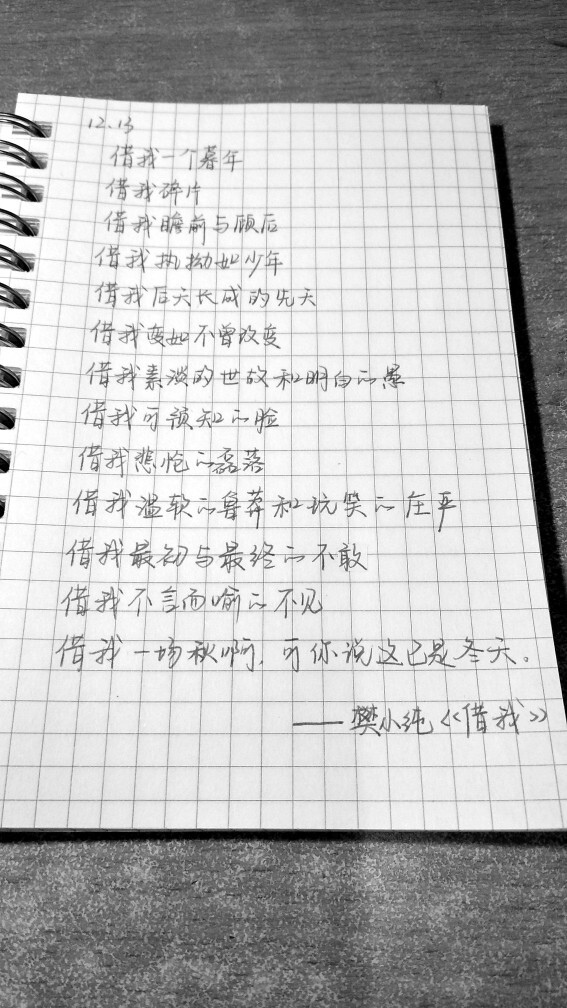 12.13
借我一个暮年
借我碎片
借我瞻前与顾后
借我执拗如少年
借我后天长成的先天
借我变如不曾改变
借我素淡的世故和明白的愚
借我可预知的脸
借我悲怆的磊落
借我温软的鲁莽和玩笑的庄严
借我最初与最终的不敢
借我不言而喻的不见
借我一场秋啊,可你说这已是冬天。
——樊小纯《借我》